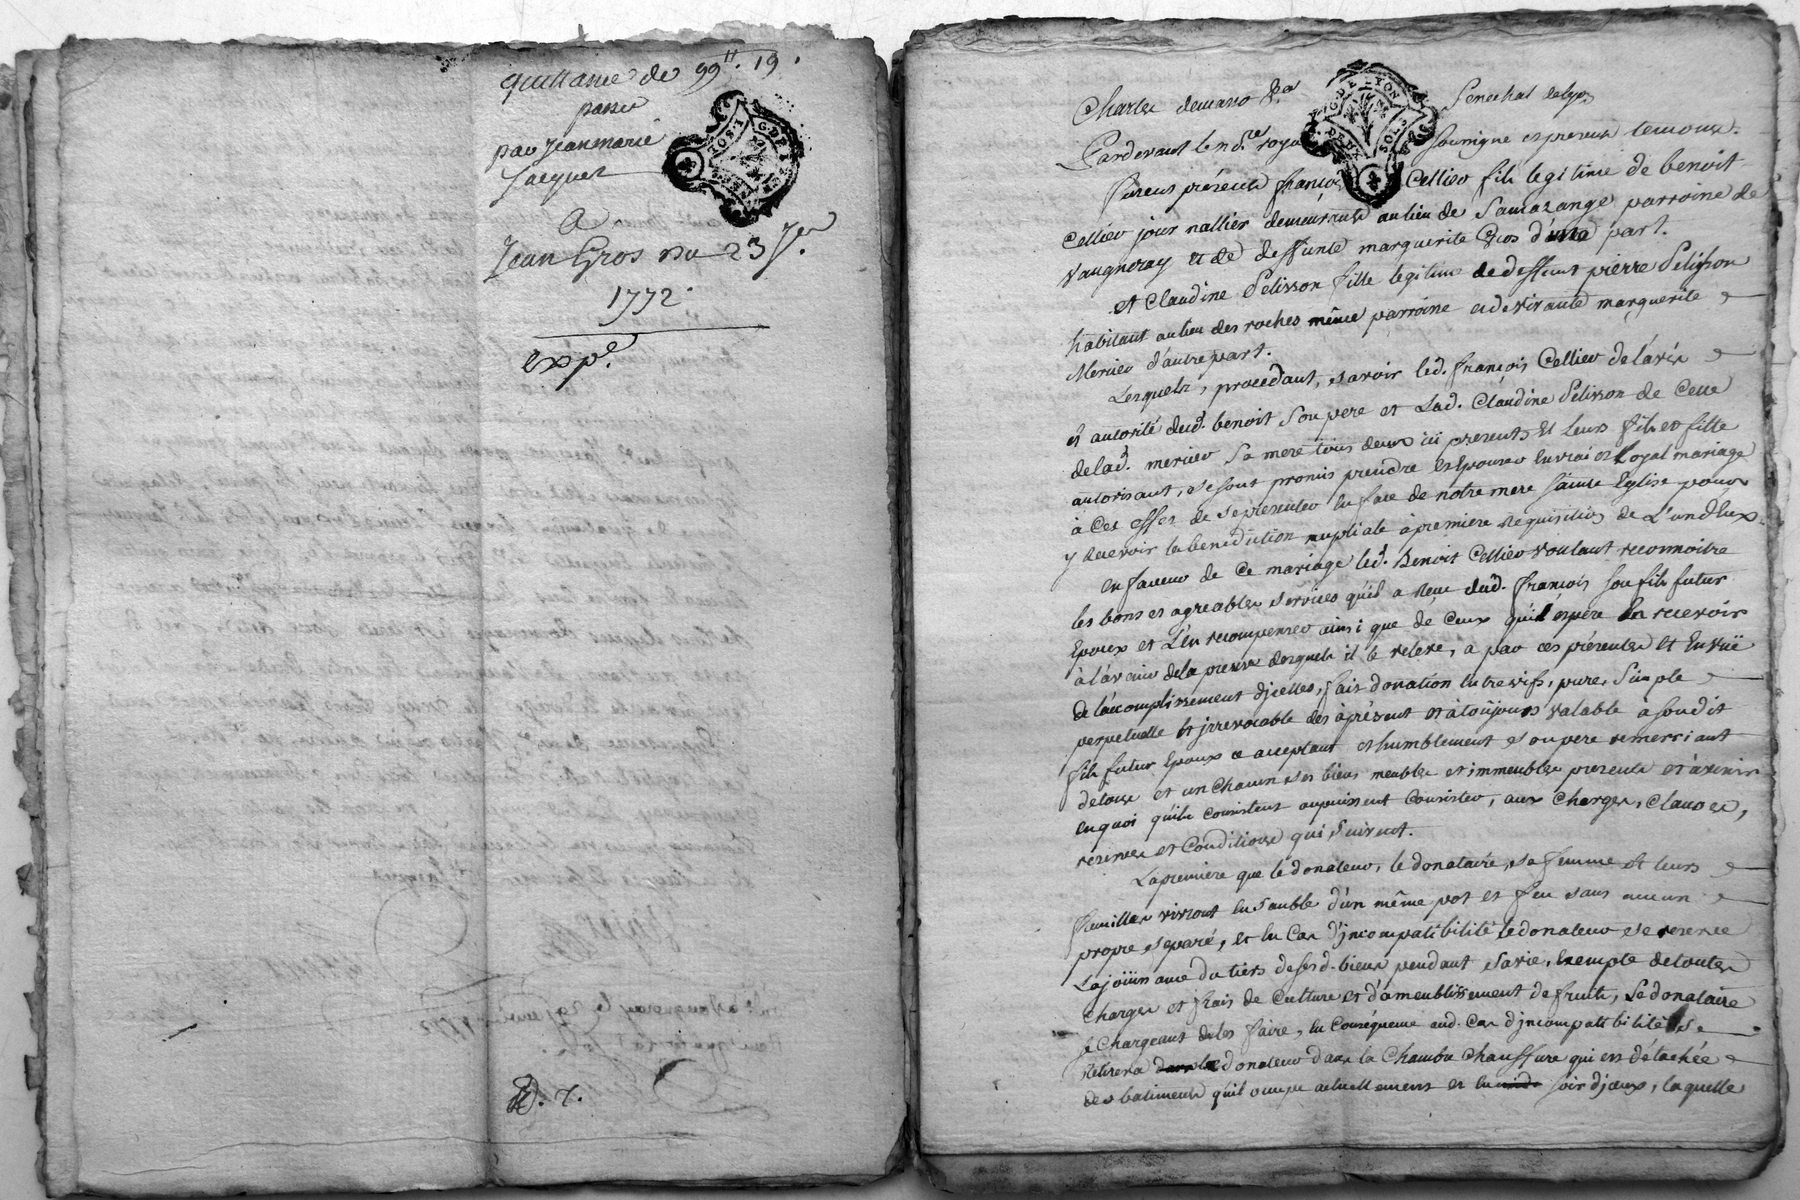 quittance de 99ᴴ. 19.
passée
par Jeanmarie
Jacquet
A
Jean Gros du 23 Jer
1772.
expe.
G. DE LYON
DEUX SOLS
Pardevant le no.re royal soussigné et présens témoins.
furent présents françois Cellier fils legitime de benoit
Cellier journallier demeurant au lieu de Samazange parroine de
vaugneray et de deffunte marguerite Gros d'une part.
et Claudine Pelisson fille legitime de deffunt pierre Pelisson
habitant au lieu des roches même parroine et de vivante marguerite
Mercier d'autre part.
Lesquels, procédant, savoir led. françois Cellier de l'avis
et autorité dud. benoit son pere et Lad. Claudine Pelisson de Celle
delad. mercier sa mere tous deux ici presents et leurs fils et fille
autorisant, se sont promis prendre et Epouser en vrai et Loyal mariage
à Cet effet de se présenter en face de notre mere sainte Eglise pour
y recevoir la benediction nuptiale à premiere requisition de L'un d'Eux.
en faveur de Ce mariage led. Benoit Cellier voulant reconnoitre
les bons et agreables services qu'il a reçu dud. françois son fils futur
Epoux et L'en recompenser ainsi que de Ceux qu'il espere En recevoir
à l'avenir de la preuve desquels il le releve, a par ces présentes et En vüe
de l'accomplissement d'jcelles, fait donation Entre vifs, pure, Simple
perpetuelle et jrrevocable dès àprésent et a toûjours valable à sondit
fils futur Epoux ce acceptant et humblement son pere remerciant
de tous et un chacun ses biens meubles et immeubles presents et àvenir
en quoi qu'ils consistent ou puissent Consister, aux charges, clauses,
reserves et Conditions qui suivent.
La premiere que le donateur, le donataire, sa femme et leurs
familles vivront Ensemble d'un même pot et feu sans aucun
propre separé, et En Cas d'jncompatibilité le donateur se reserve
La joüissance du tiers desesd. biens pendant sa vie, Exempte de toutes
Charges et frais de Culture et d'ameublissement de fruits, Le donataire
se Chargeant de les faire, En Conséquence aud. Cas d'jncompatibilité se
retirera le donateur dans la Chambre Chauffure qui est détachée
des batiments qu'il occupe actuellement et En soir d'jceux, laquelle